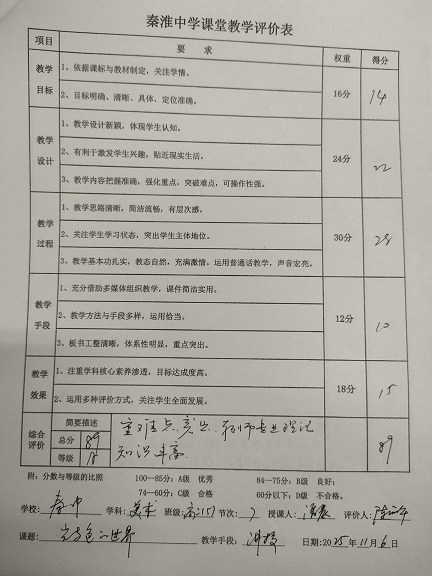 秦淮中学课堂教学评价表
项目 要 求 权重 得分
教学目标 1、依据课标与教材制定，关注学情。 16分 14
2、目标明确、清晰、具体，定位准确。
教学设计 1、教学设计新颖，体现学生认知。 24分 22
2、有利于激发学生兴趣，贴近现实生活。
3、教学内容把握准确，强化重点，突破难点，可操作性强。
教学过程 1、教学思路清晰，简洁流畅，有层次感。 30分 28
2、关注学生学习状态，突出学生主体地位。
3、教学基本功扎实，教态自然，充满激情，运用普通话教学，声音宏亮。
教学手段 1、充分借助多媒体组织教学，课件简洁实用。 12分 10
2、教学方法与手段多样，运用恰当。
3、板书工整清晰，体系性明显，重点突出。
教学效果 1、注重学科核心素养渗透，目标达成度高。 18分 15
2、运用多种评价方式，关注学生全面发展。
综合评价 简要描述 重难点突出、教师专业理论 89
总分 89 知识丰富
等级 A
附：分数与等级的比照 100—85分：A级 优秀 84—75分：B级 良好；
74—60分：C级 合格 60分以下：D级 不合格。
学校： 秦中 学科： 美术 班级： 高二(15) 节次： 7 授课人： 评价人：
课题： 光与色的世界 教学手段： 讲授 日期：2025年11月6日